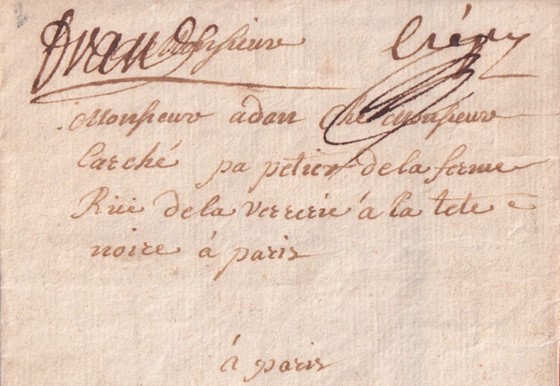 Monsieur Crépy
Monsieur adan ché Monsieur
Larché pa petier de la ferme
Rüe de la verrerie á la tete
noire á paris
á paris